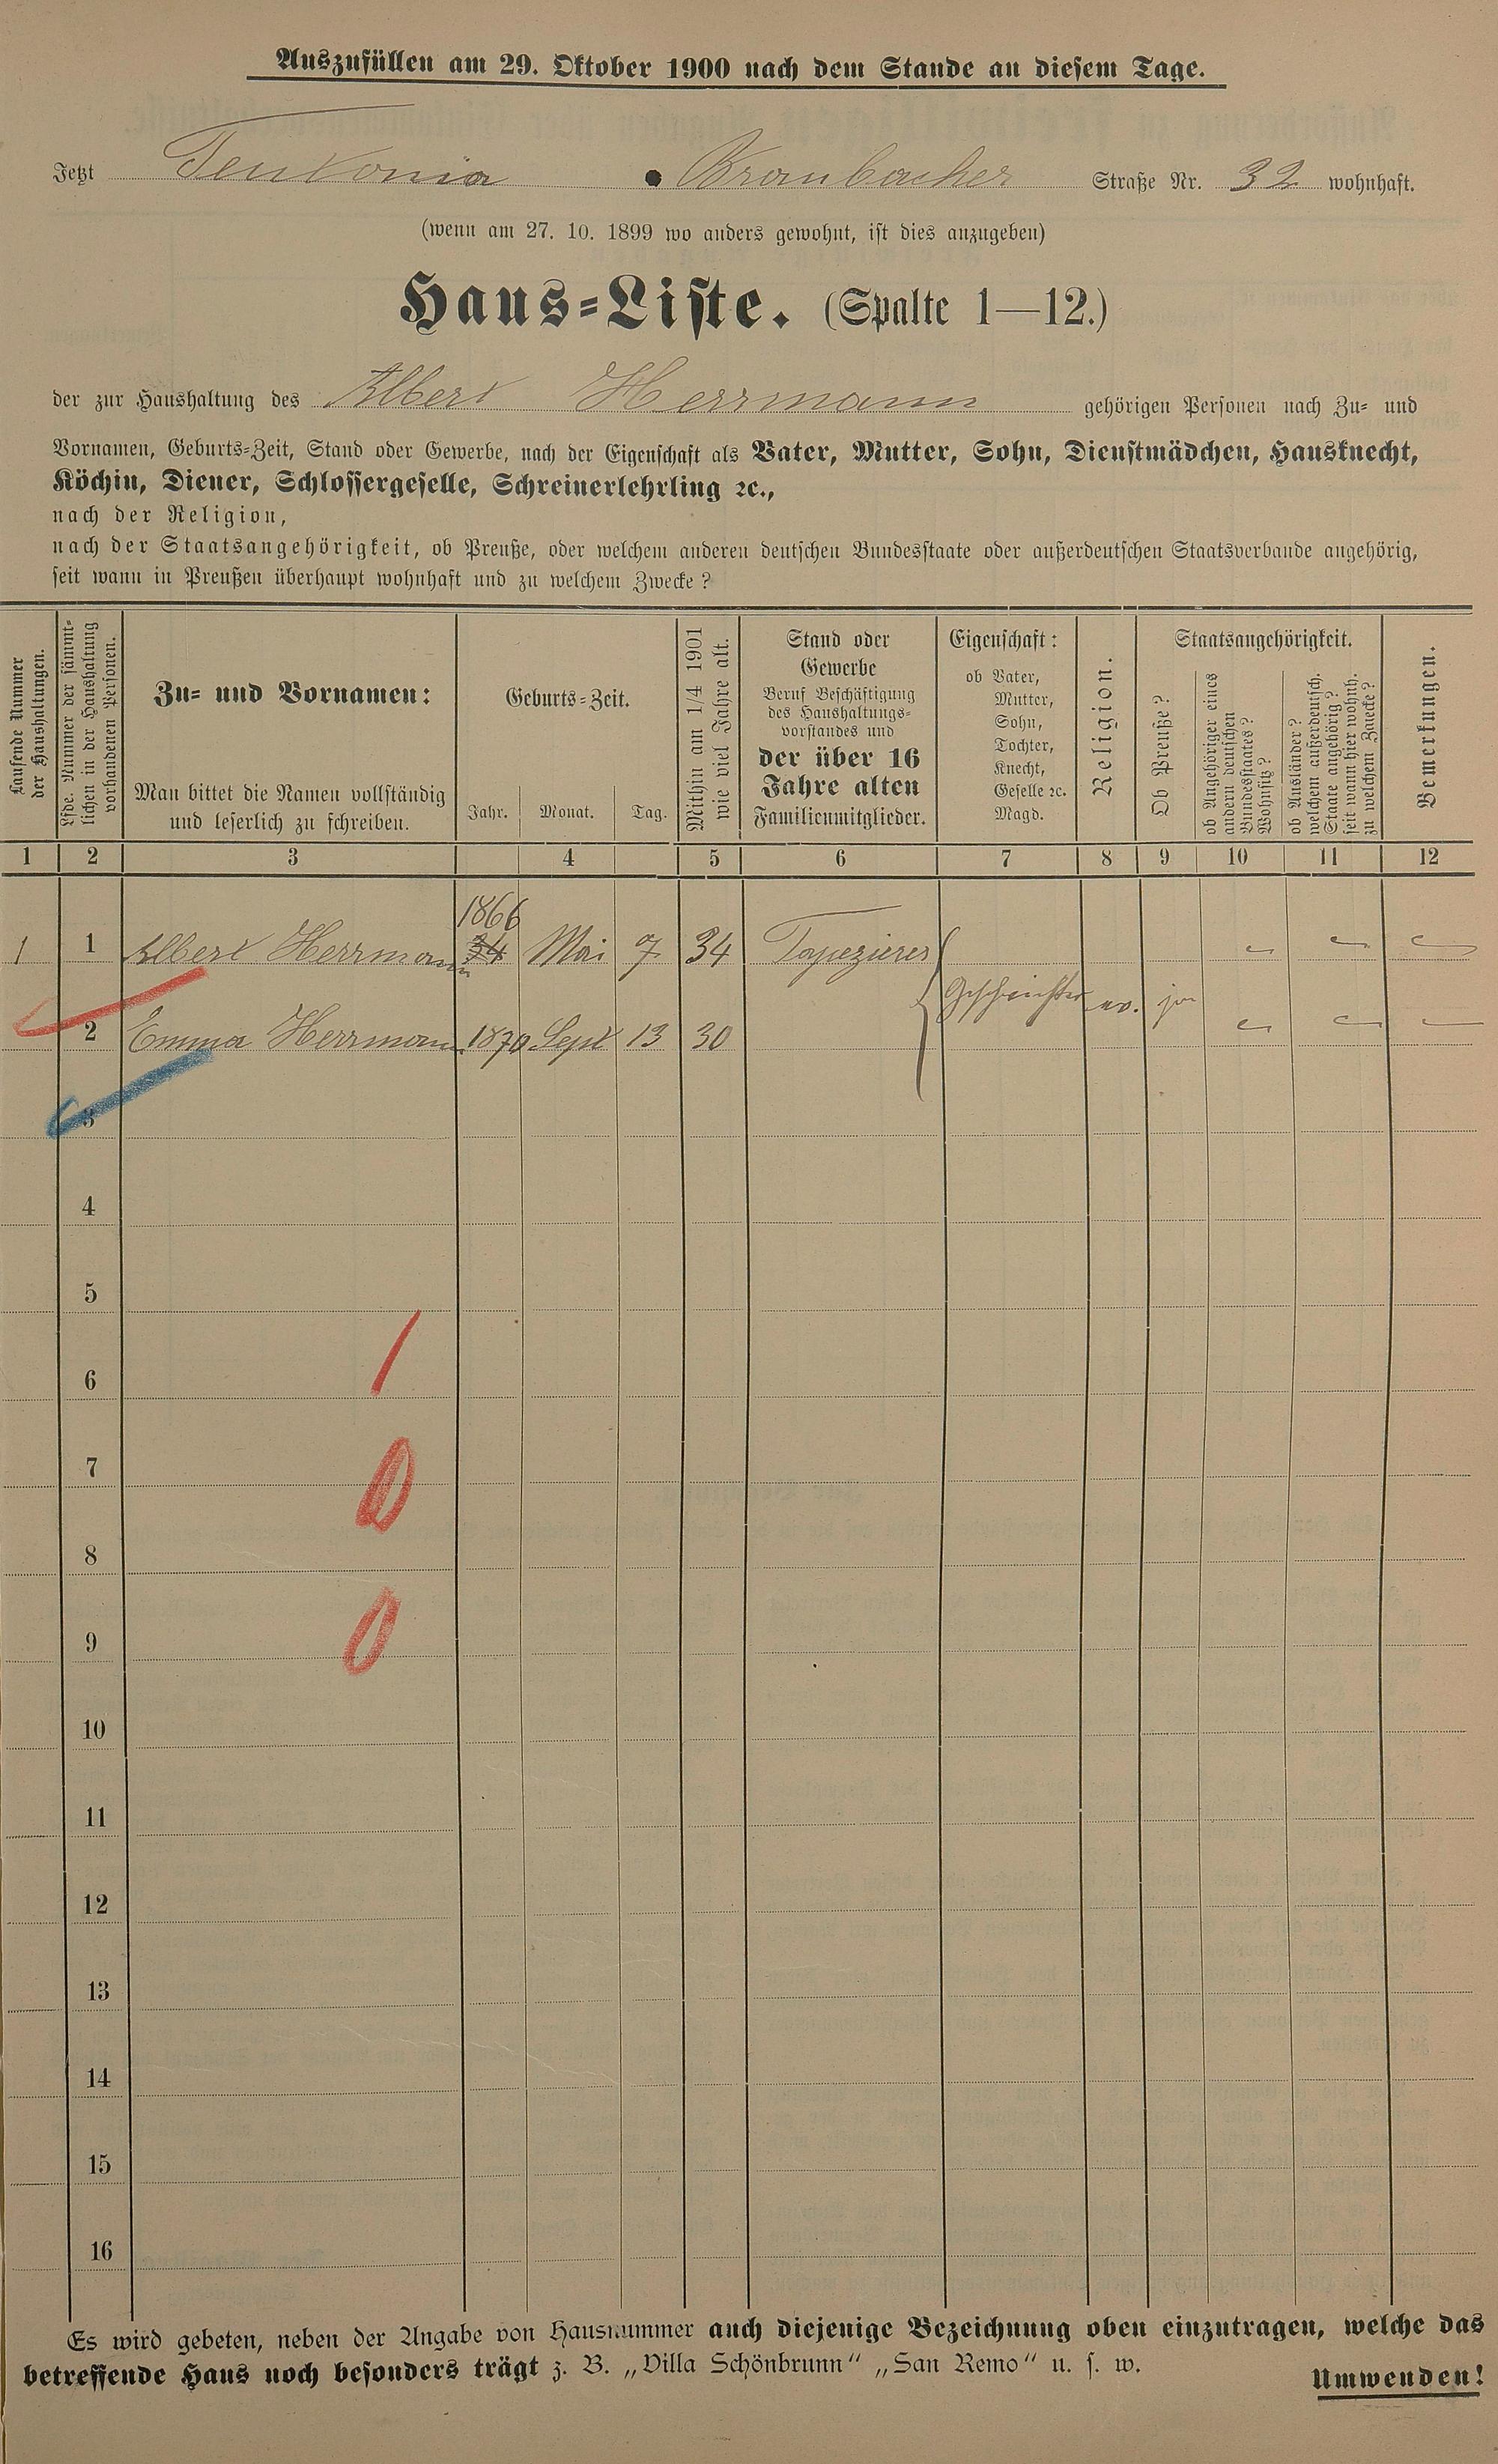 Auszufüllen am 29. Oktober 1900 nach dem Stande an diesem Tage.
Jetzt Teutonia Braubacher Straße Nr. 32 wohnhaft.
(wenn am 27. 10. 1899 wo anders gewohnt, ist dies anzugeben)
Haus=Liste. (Spalte 1—12.)
der zur Haushaltung des Albert Herrmann gehörigen Personen nach Zu= und
Vornamen, Geburts=Zeit, Stand oder Gewerbe, nach der Eigenschaft als Vater, Mutter, Sohn, Dienstmädchen, Hausknecht,
Köchin, Diener, Schlossergeselle, Schreinerlehrling ꝛc.,
nach der Religion,
nach der Staatsangehörigkeit, ob Preuße, oder welchem anderen deutschen Bundesstaate oder außerdeutschen Staatsverbande angehörig,
seit wann in Preußen überhaupt wohnhaft und zu welchem Zwecke?
Laufende Nummer
der Haushaltungen.
Lfde. Nummer der sämmt=
lichen in der Haushaltung
vorhandenen Personen.
Zu= und Vornamen:
Man bittet die Namen vollständig
und leserlich zu schreiben.
Geburts=Zeit.
Jahr. Monat. Tag.
Mithin am 1/4 1901
wie viel Jahre alt.
Stand oder
Gewerbe
Beruf Beschäftigung
des Haushaltungs=
vorstandes und
der über 16
Jahre alten
Familienmitglieder.
Eigenschaft:
ob Vater,
Mutter,
Sohn,
Tochter,
Knecht,
Geselle ꝛc.
Magd.
Religion.
Staatsangehörigkeit.
Ob Preuße?
ob Angehöriger eines
andern deutschen
Bundesstaates?
Wohnsitz?
ob Ausländer?
welchem außerdeutsch.
Staate angehörig?
seit wann hier wohnh.
zu welchem Zwecke?
Bemerkungen.
1 2 3 4 5 6 7 8 9 10 11 12
1866
1 1 Albert Herrmann 34 Mai 7 34 Tapezierer
Geschwister ev. ja
2 Emma Herrmann 1870 Sept 13 30
3
4
5
6
7
8
9
10
11
12
13
14
15
16
1
0
0
Es wird gebeten, neben der Angabe von Hausnummer auch diejenige Bezeichnung oben einzutragen, welche das
betreffende Haus noch besonders trägt z. B. „Villa Schönbrunn“ „San Remo“ u. s. w.
Umwenden!